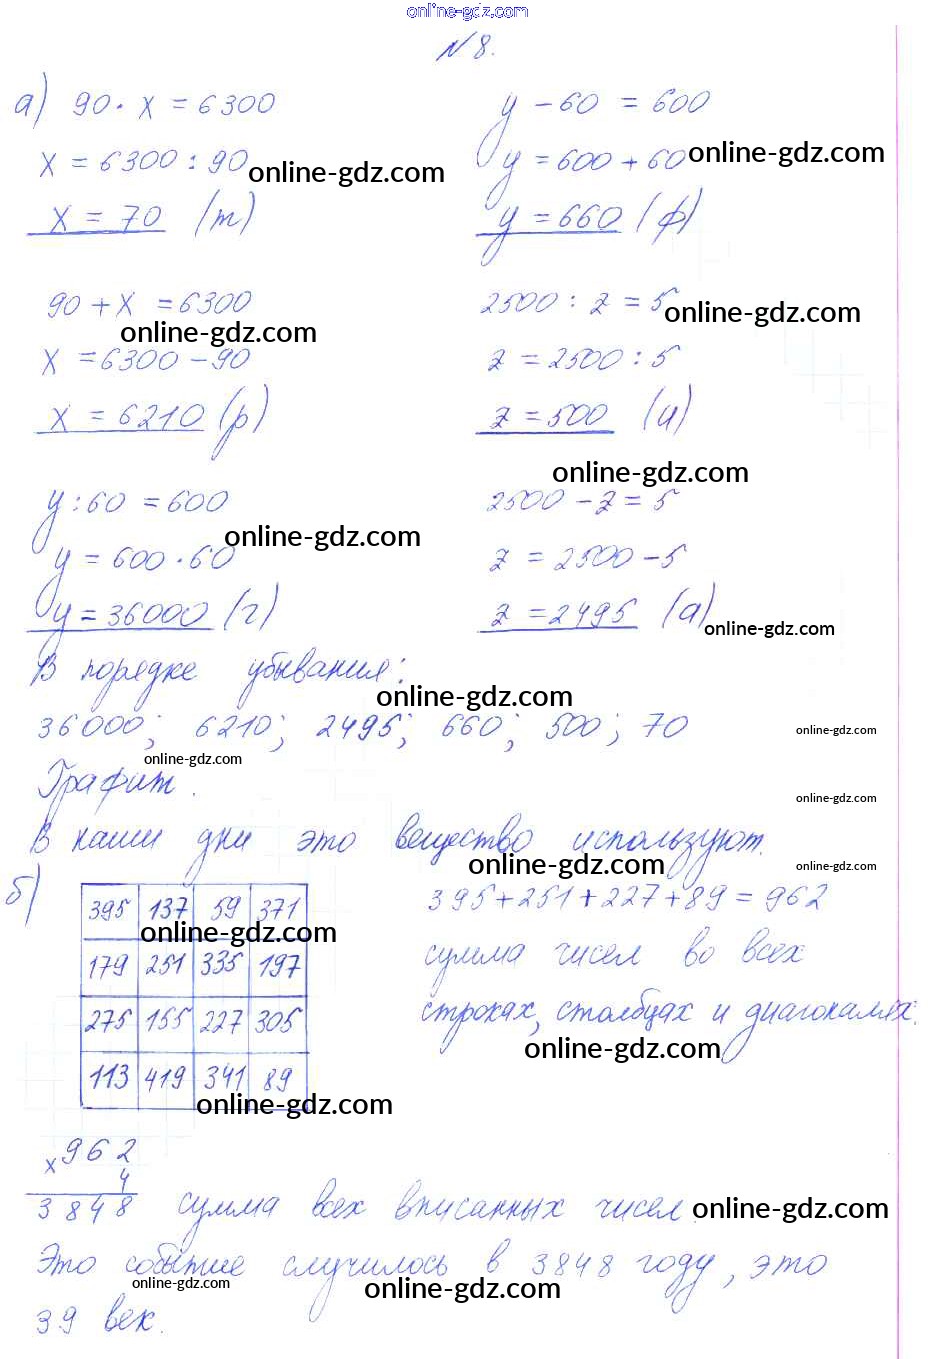 online-gdz.com
№8.
а) 90 · x = 6300
x = 6300 : 90
online-gdz.com
x = 70 (т)
y - 60 = 600
y = 600 + 60
online-gdz.com
y = 660 (ф)
90 + x = 6300
online-gdz.com
x = 6300 - 90
x = 6210 (р)
2500 : z = 5
online-gdz.com
z = 2500 : 5
z = 500 (и)
online-gdz.com
y : 60 = 600
online-gdz.com
y = 600 · 60
y = 36000 (г)
2500 - z = 5
z = 2500 - 5
z = 2495 (а)
online-gdz.com
В порядке убывания:
online-gdz.com
36000; 6210; 2495; 660; 500; 70
online-gdz.com
online-gdz.com
Графит.
online-gdz.com
В наши дни это вещество используют.
online-gdz.com
online-gdz.com
б)
395 137 59 371
online-gdz.com
179 251 335 197
275 155 227 305
113 419 341 89
online-gdz.com
395 + 251 + 227 + 89 = 962
сумма чисел во всех
строках, столбцах и диагоналях.
online-gdz.com
x 962
4
3848 сумма всех вписанных чисел
online-gdz.com
Это событие случилось в 3848 году, это
online-gdz.com
online-gdz.com
39 век.